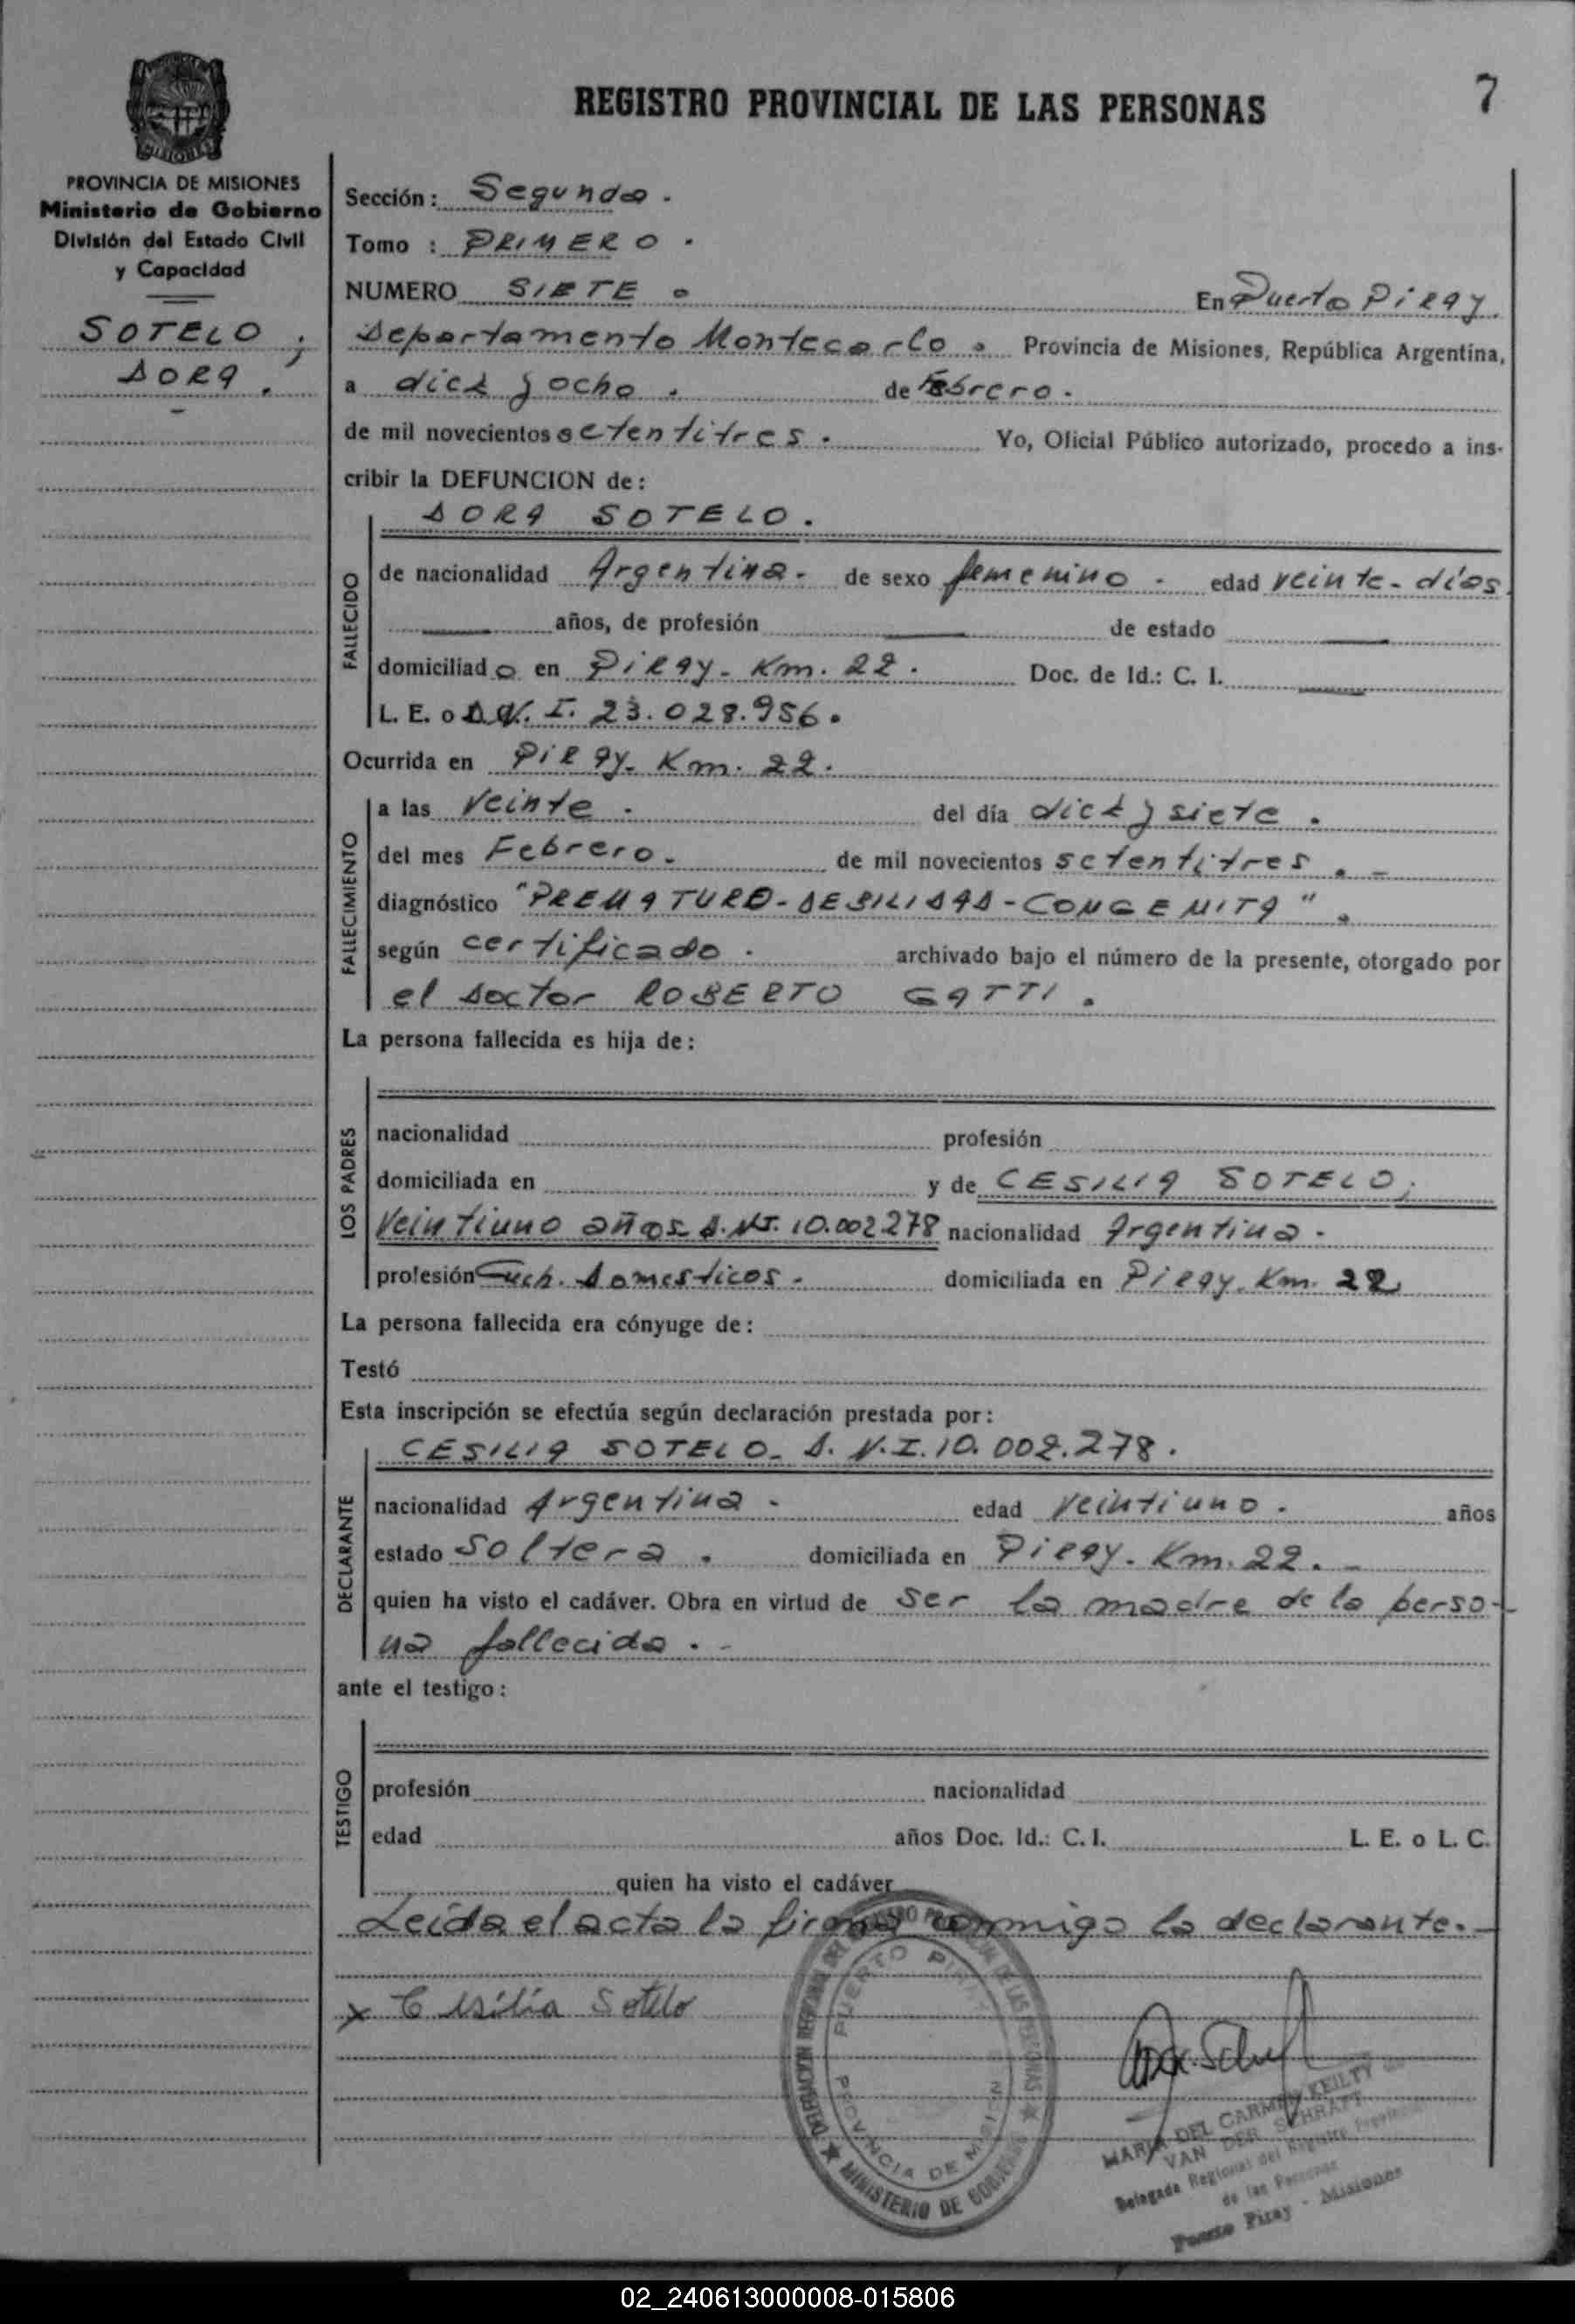 7
REGISTRO PROVINCIAL DE LAS PERSONAS
MISIONES
PROVINCIA DE MISIONES
Ministerio de Gobierno
División del Estado Civil
y Capacidad
SOTELO ;
DORA .
Sección : Segunda .
Tomo : PRIMERO .
NUMERO SIETE . En Puerto Piray.
Departamento Montecarlo . Provincia de Misiones, República Argentina,
a diez y ocho . de Febrero .
de mil novecientos setentitres . Yo, Oficial Público autorizado, procedo a ins-
cribir la DEFUNCION de :
DORA SOTELO .
FALLECIDO
de nacionalidad Argentina . de sexo femenino . edad veinte - días
años, de profesión de estado
domiciliado en Piray - Km. 22 . Doc. de Id.: C. I.
L. E. o D.N.I. 23.028.956 .
Ocurrida en Piray - Km. 22 .
FALLECIMIENTO
a las veinte . del día diez y siete .
del mes Febrero . de mil novecientos setentitres . -
diagnóstico "PREMATURO - DEBILIDAD - CONGENITA" .
según certificado . archivado bajo el número de la presente, otorgado por
el Doctor ROBERTO GATTI .
La persona fallecida es hija de :
LOS PADRES
nacionalidad profesión
domiciliada en y de CESILIA SOTELO ;
Veintiuno años D.N.I. 10.002.278 nacionalidad Argentina .
profesión Domesticos . domiciliada en Piray - Km. 22
La persona fallecida era cónyuge de :
Testó
Esta inscripción se efectúa según declaración prestada por :
CESILIA SOTELO - D.N.I. 10.002.278 .
DECLARANTE
nacionalidad Argentina . edad veintiuno . años
estado Soltera . domiciliada en Piray - Km. 22 . -
quien ha visto el cadáver. Obra en virtud de ser la madre de la perso-
na fallecida . -
ante el testigo :
TESTIGO
profesión nacionalidad
edad años Doc. Id.: C. I. L. E. o L. C.
quien ha visto el cadáver
Leída el acta la firma conmigo la declarante. -
x Cesilia Sotelo
DELEGACION REGIONAL DEL REGISTRO PROVINCIAL DE LAS PERSONAS
PUERTO PIRAY
PROVINCIA DE MISIONES
MINISTERIO DE GOBIERNO
MARIA DEL CARMEN KEILTY de
VAN DER SCHRAFT
Delegada Regional del Registro Provincial
de las Personas
Puerto Piray - Misiones
02_240613000008-015806